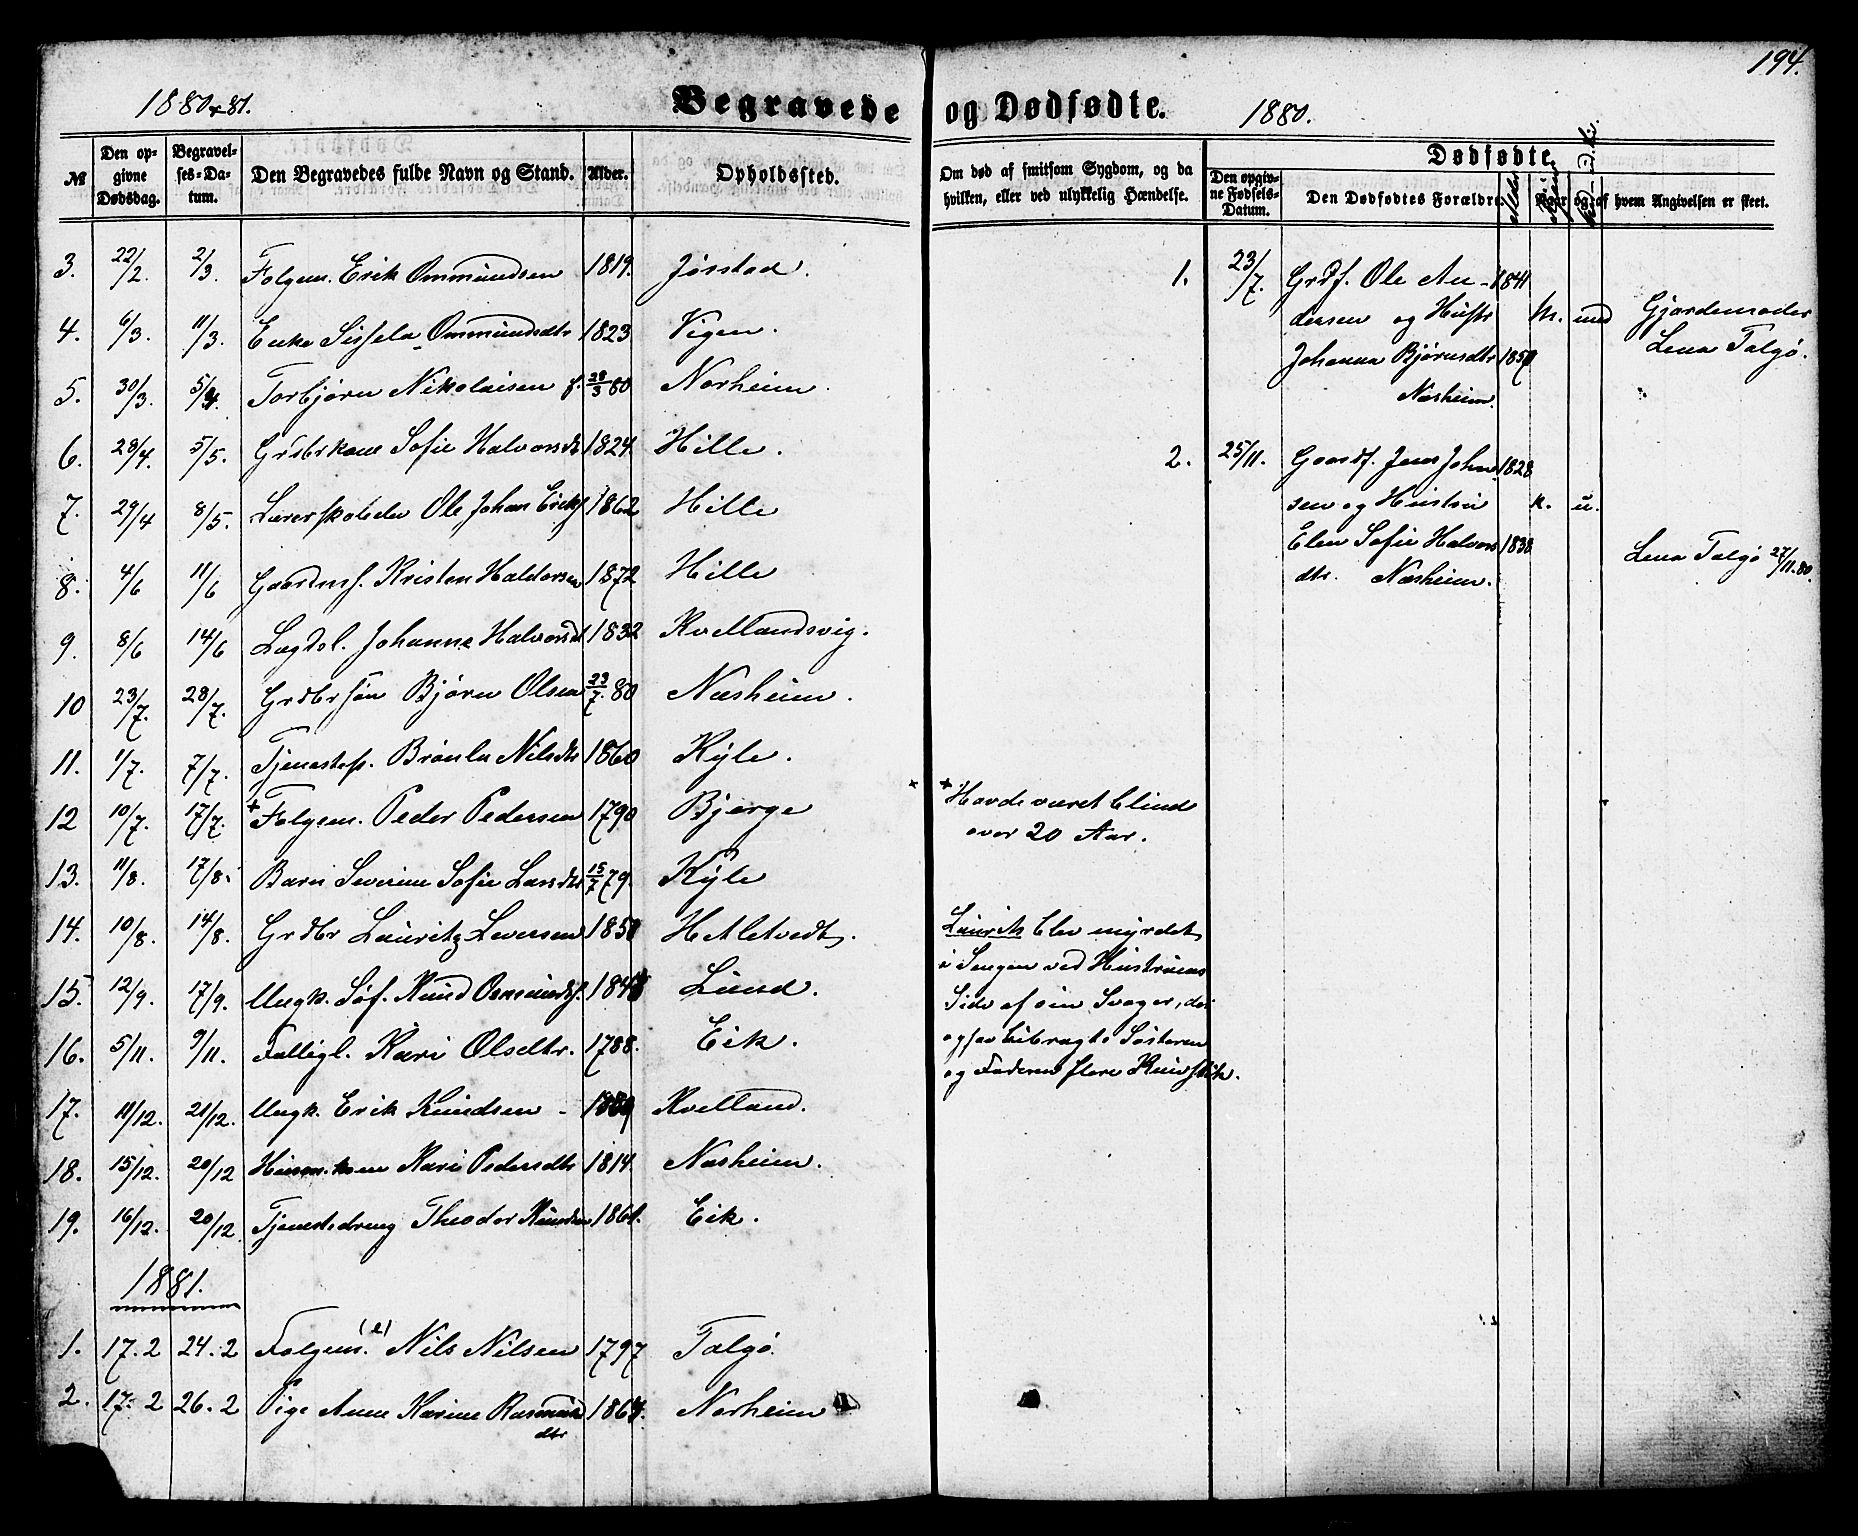 194.
1880 & 81.
Begravede og Dødfødte.
1880.
№ Den opgivne Dødsdag. Begravelses-Datum. Den Begravedes fulde Navn og Stand. Alder. Opholdssted.
Om død af smitsom Sygdom, og da hvilken, eller ved ulykkelig Hændelse.
Dødfødte.
Den opgivne Fødsels-Datum. Den Dødfødtes Forældre. Naar og af hvem Angivelsen er skeet.
3. 22/2. 2/3. Folgem. Erik Ommundsen 1819. Jørstad.
4. 6/3. 11/3. Enke Sissela Ommundsdtr 1823 Vigen.
5. 30/3. 5/4. Torbjørn Nikolaisen f. 28/3 80 Norheim.
6. 28/4. 5/5. Grdbrkone Sofie Halvorsdt 1824. Hille.
7. 29/4 8/5. Ole Johan Eriks. 1862 Hille
8. 4/6 11/6 Gaardms. Kristen Haldorsen 1872 Hille
9. 8/6 14/6 Lægdsl. Johanne Halvorsdt 1832 Kvellandsvig.
10 23/7. 28/7. Grdbrsøn Bjørn Olsen 23/7. 80 Næsheim.
11. 1/7. 7/7. Tjenestep. Brønla Nilsdtr 1860 Kyle.
12 10/7. 17/7. + Folgem. Peder Pedersen 1790 Bjerge +
13. 11/8. 17/8. Barn Severine Sofie Larsdtr 15/7 79. Kyle
14. 10/8. 14/8. Grdbr Lauritz Iversen 1850 Hetletvedt.
15. 12/9. 17/9. Ungk. Søf. Knud Osmunds. 184 Lund.
16. 5/11. 9/11. Fattigl. Kari Olsdtr. 1788. Eik.
17. 11/12. 21/12. Ungk. Erik Knudsen - Kvelland.
18. 15/12. 20/12 Husm.kone Kari Pedersdtr 1814. Næsheim.
19. 16/12. 20/12. Tjenestedreng Theodor Knudsen 1861. Eik.
1881.
1. 17. 2 24. 2 Folgem. (e) Nils Nilsen 1797 Talgø.
2. 17. 2 26. 2 Pige Anne Karine Rasmus 1864. Norheim
dtr
+ Havde været blind
over 20 Aar.
Laurits blev myrdet
i Sengen ved Hustruens
Side af sin Svoger, der
ogsaa bibragte Søsteren
og Faderen flere Knivstik.
1. 23/7. Grdf. Ole An- 1841
dersen og Hustr M. und Gjordemoder
Johanna Bjørnsdtr 1850 Lena Talgø.
Næsheim.
2. 25/11. Gaardf. Jens John 1828
sen og Hustru k. u.
Elen Sofie Halvors 1838
dtr. Næsheim. Lena Talgø 27/11. 80.